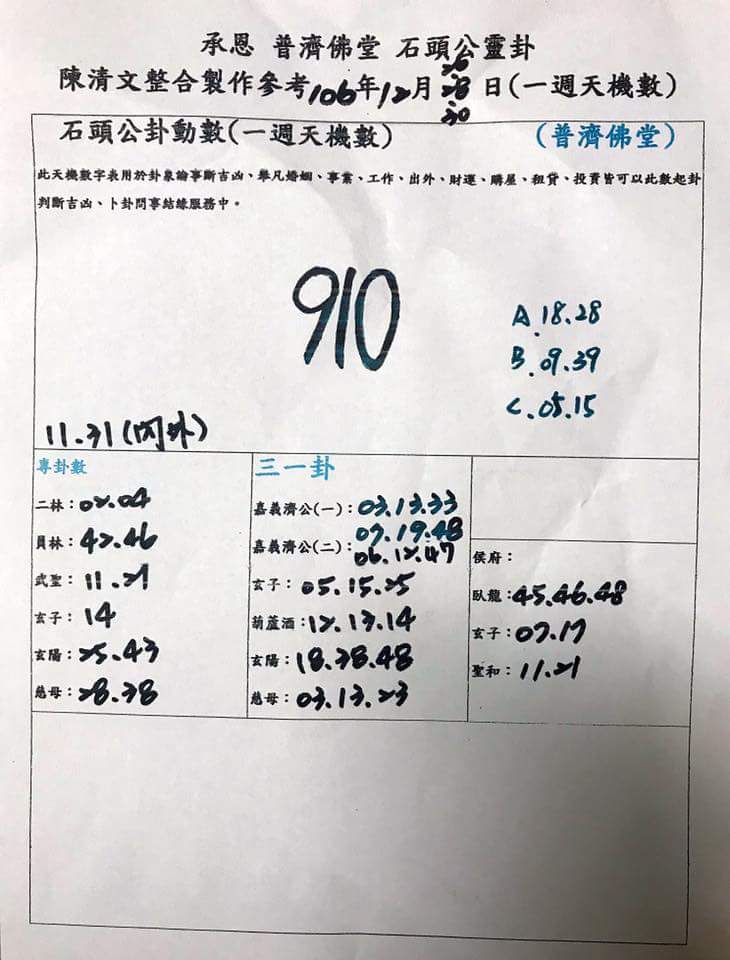 承恩 普濟佛堂 石頭公靈卦
陳清文整合製作參考106年12月26 28 30日(一週天機數)
石頭公卦動數(一週天機數) (普濟佛堂)
此天機數字表用於卦象論事斷吉凶、舉凡婚姻、事業、工作、出外、財運、購屋、租貸、投資皆可以此數起卦
判斷吉凶、卜卦問事結緣服務中。
910
A.18.28
B.09.39
C.05.15
11.31(內外)
專卦數
二林:02.04
員林:42.46
武聖:11.21
玄子:14
玄陽:25.43
慈母:28.38
三一卦
嘉義濟公(一):03.13.33
09.19.48
嘉義濟公(二):06.12.47
玄子:05.15.25
葫蘆酒:12.13.14
玄陽:18.38.48
慈母:03.13.23
侯府:
臥龍:45.46.48
玄子:07.17
聖和:11.21